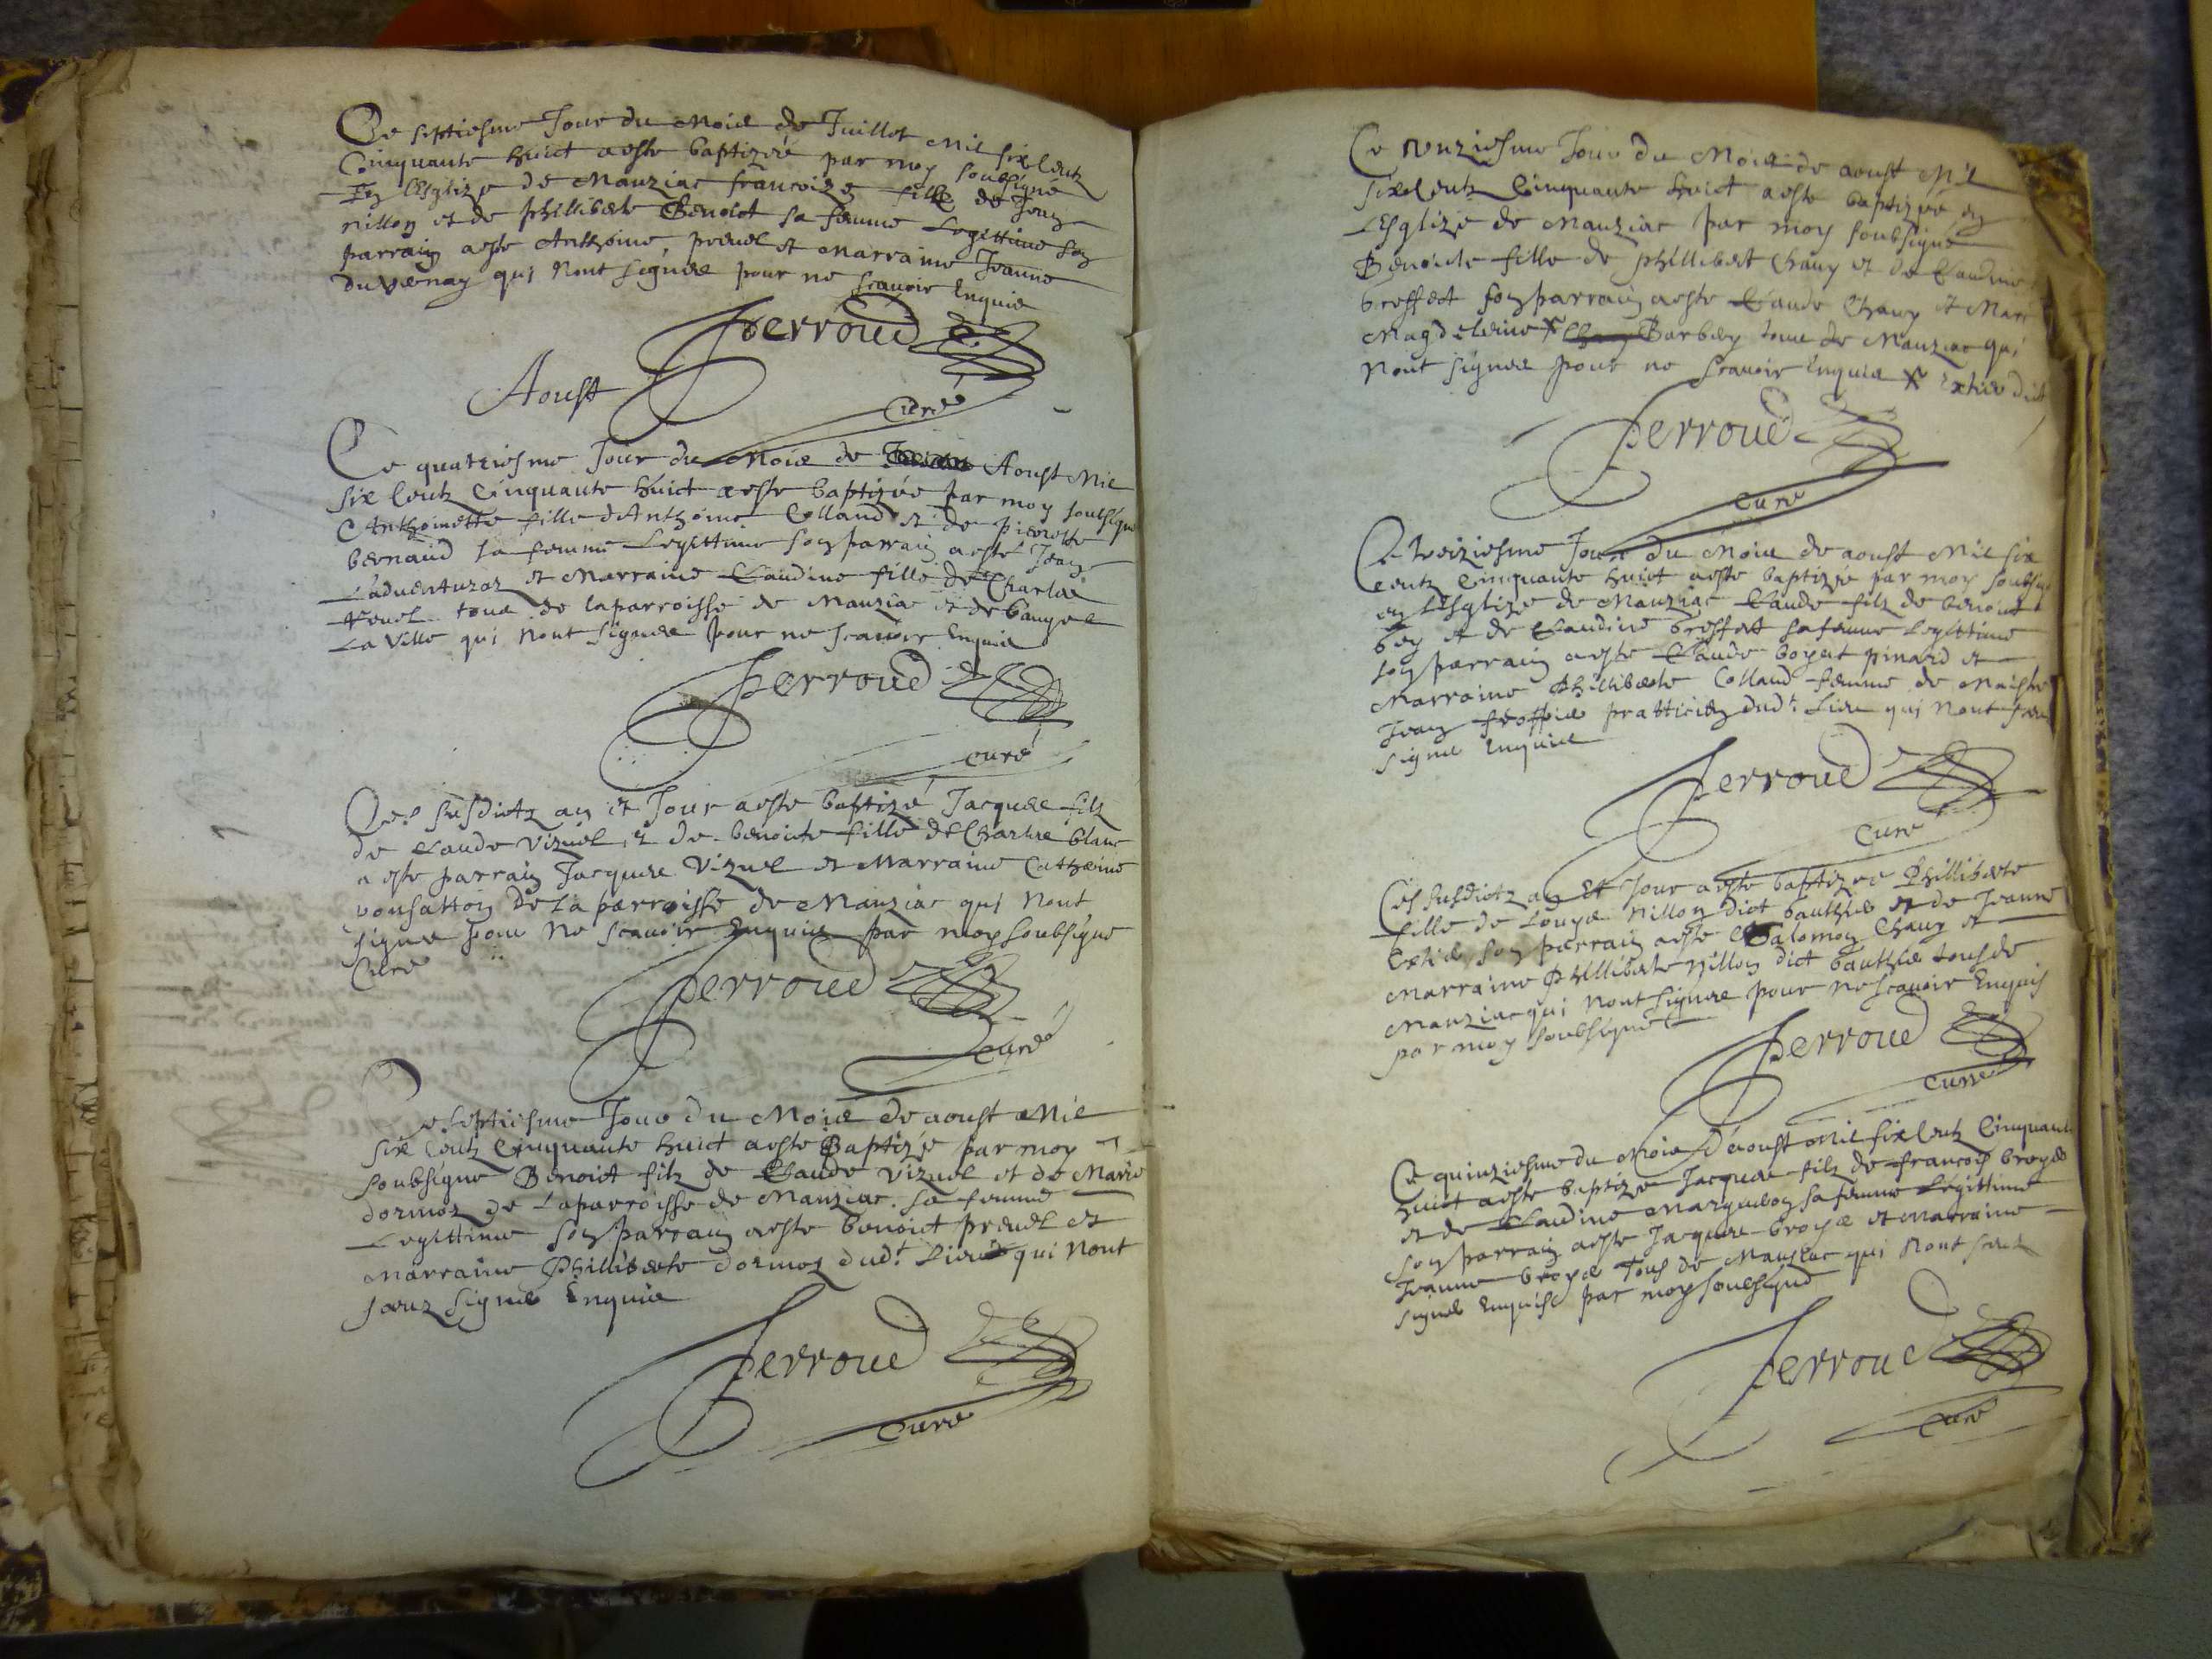 Ce septiesme Jour du Mois de Juillet Mil six Centz
Cinquante huict a este baptizée par moy soubsigné
En lEsglize de Manziac francoize fille de Jean
nillon et de philliberte Benoict sa femme Legittime son
parrain a este Anthoine preuel et Marraine Jeanne
duvernay qui nont signés pour ne scavoir Enquis
Perroud
Curé
Aoust
Ce quatriesme Jour du Mois de Aoust Mil
six Centz Cinquante huict a este baptizée par moy soubsigné
Anthoinette fille dAnthoine Colland et de pierrette
bernaud sa femme Legittime son parrain a este Jean
Laduenturaz et Marraine Claudine fille de Charles
feuel tous de la parroisse de Manziac et de baugel
La Ville qui nont signés pour ne scavoir Enquis
Perroud
curé
Ces susdictz an et Jour a este baptizé Jacques filz
de Claude Vizuel et de benoicte fille de Charles blanc
a este parrain Jacques Vizuel et Marraine Catherine
vonsatton de la parroisse de Manziac qui nont
signe pour ne scavoir Enquis par moy soubsigne
Curé
Perroud
Curé
Ce septiesme Jour du Mois de aoust Mil
six Centz Cinquante huict a este Baptizée par moy
soubsigne Benoict filz de Claude Vizuel et de Marie
dormoz de La parroisse de Manziac sa femme
Legittime son parrain a este benoict preuel et
marraine Philliberte dormoz dudt. Lieu qui nont
sceuz signer Enquis
Perroud
Curé
Ce unziesme Jour du Mois de aoust Mil
six Centz Cinquante huict a este baptizée en
LEsglize de Manziac par moy soubsigné
Benoicte fille de phillibert Chany et de Claudine
breffort son parrain a este Claude Chany et Marr
Magdeleine x Barbery tous de Manziac qui
nont signés pour ne scavoir Enquis x Extier dict
Perroud
Curé
Ce treiziesme Jour du Mois de aoust Mil six
Centz Cinquante huict a este baptizée par moy soubsigné
en lEsglize de Manziac Claude filz de benoict
bey et de Claudine breffort sa femme Legittime
son parrain a este Claude boyat pinard et
Marraine Philliberte Colland femme de Maistre
Jean praticien dudt. Lieu qui nont sceu
signer Enquis
Perroud
Curé
Ces susdictz an Et Jour a este baptizée Philliberte
fille de Louys Nillon dict bauthier et de Jeanne
Extier son parrain a este Salomon Chany et
Marraine Philliberte Nillon dict bauthier tous de
Manziac qui nont signés pour ne scavoir Enquis
par moy soubsigné
Perroud
Curé
Ce quinziesme du Mois d'aoust Mil six Centz Cinquante
huict a este baptizé Jacques filz de francois broyer
et de Claudine Marguibon sa femme Legittime
son parrain a este Jacques broyer et Marraine
Jeanne broyer Tous de Manziac qui nont sceu
signer Enquis par moy soubsigné
Perroud
Curé